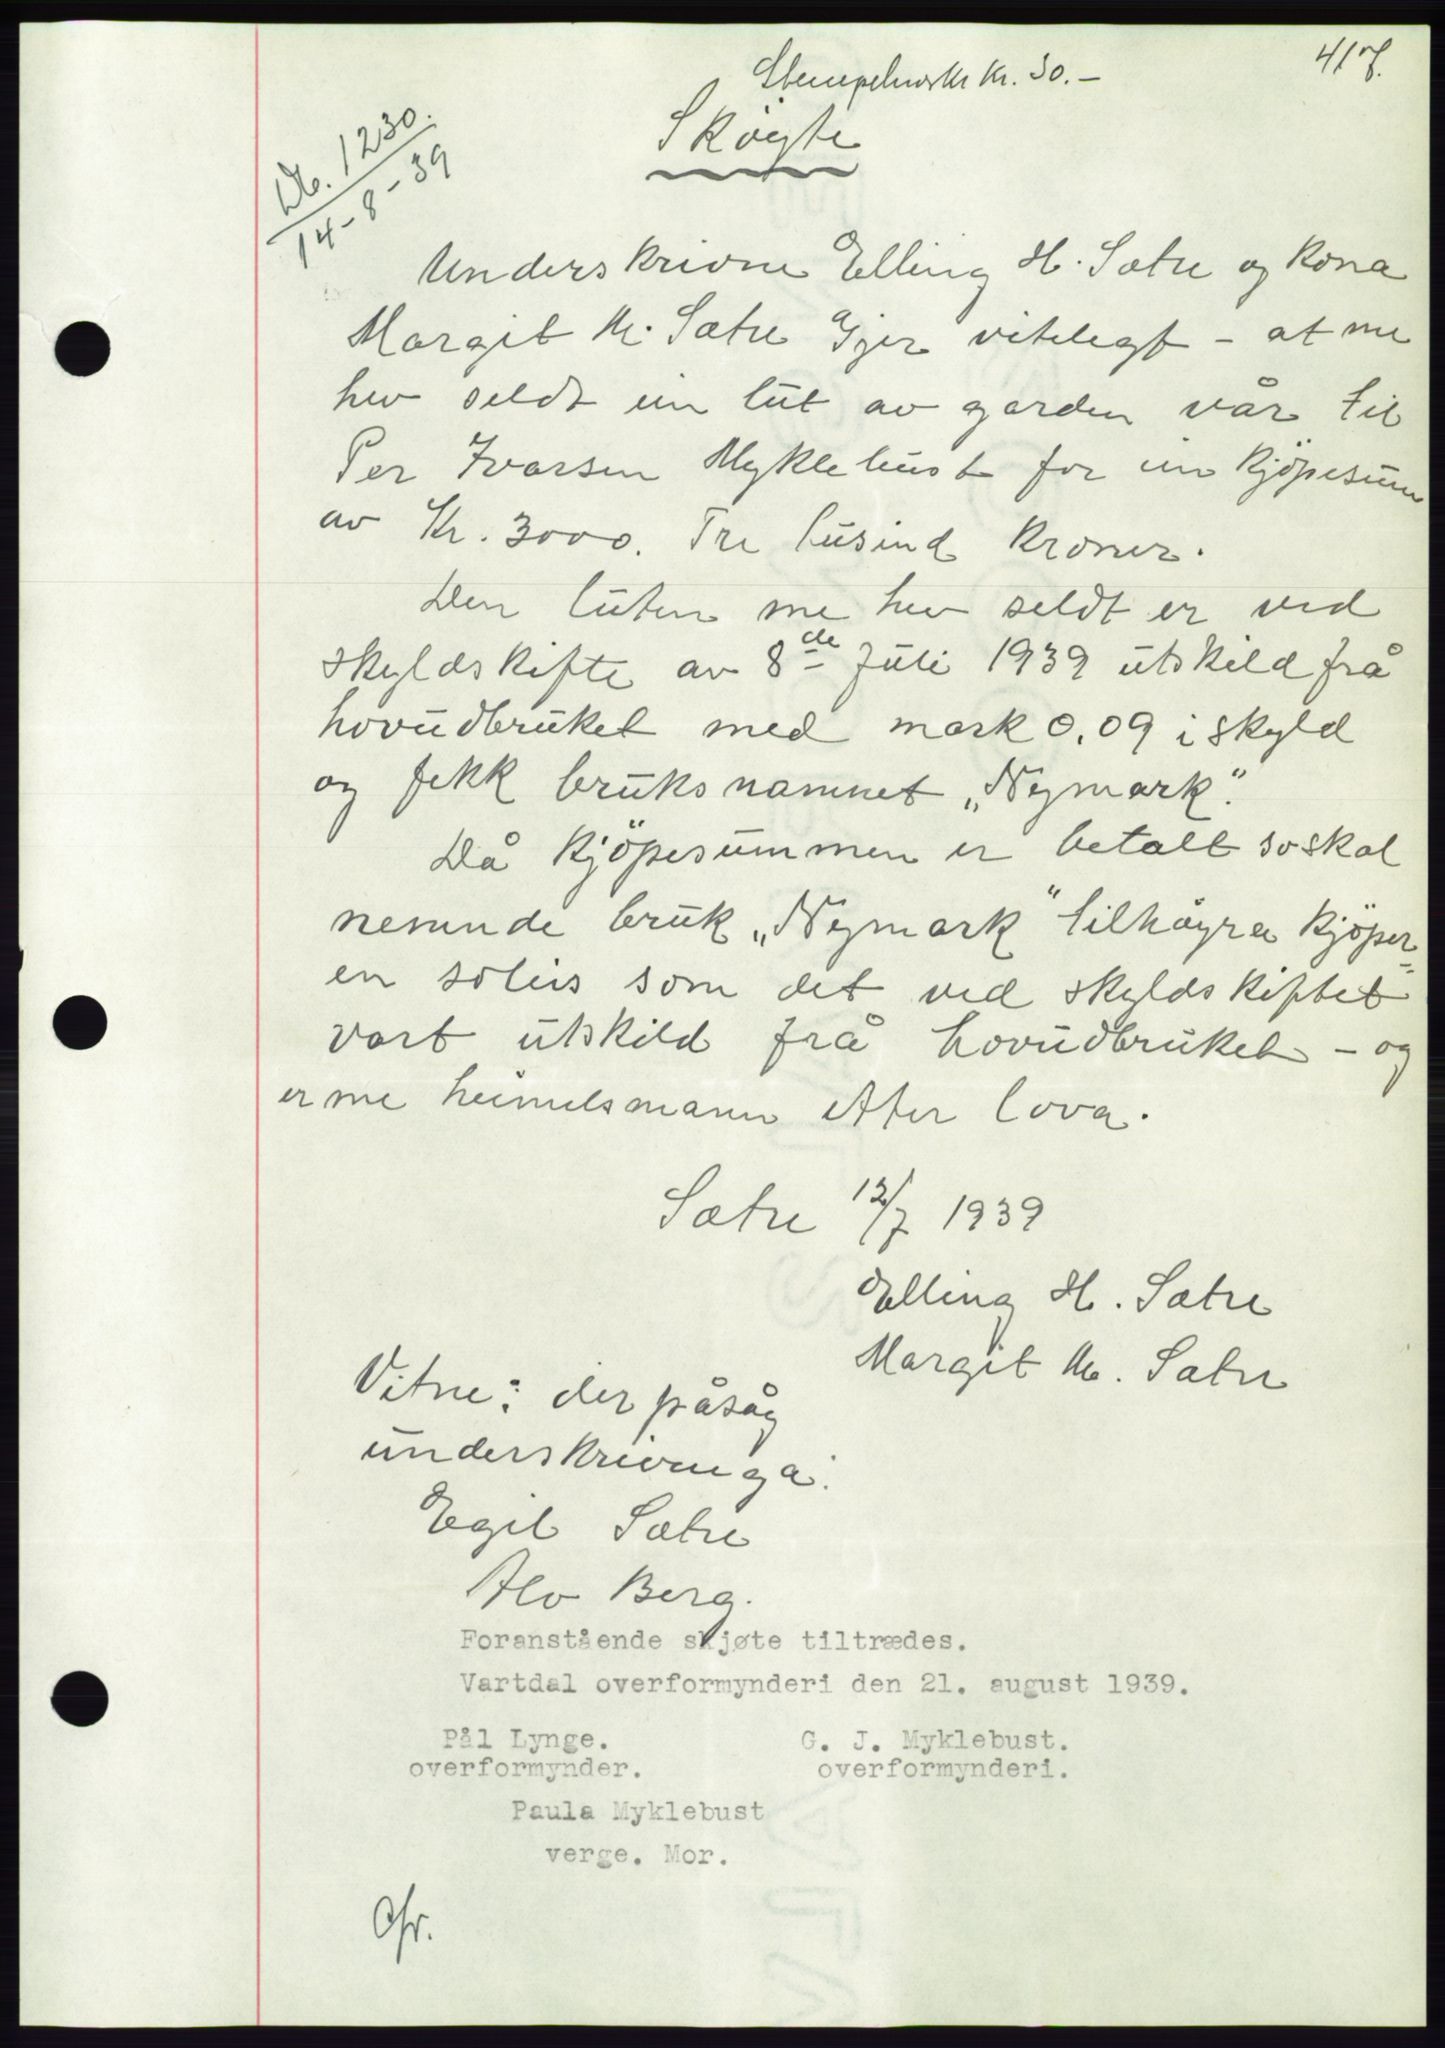 417.
Stempelmerke kr. 30.-
Skøyte
Db. 1230.
14-8-39
Underskrivne Elling H. Sætre og kona
Margit M. Sætre Gjer vitelegt - at me
hev seldt ein lut av garden vår til
Per Ivarsen Myklebust for ein kjöpesum
av Kr. 3000. Tre tusind Kroner.
Den luten me hev seldt er ved
skyldskifte av 8de Juli 1939 utskild frå
hovudbruket med mark 0,09 i skyld
og fekk bruksnamnet „Nymark".
Då kjöpesummen er betalt so skal
nemnde bruk „Nymark" tilhøyra kjöper-
en soleis som det ved skyldskiftet
vart utskild frå hovudbruket - og
er me heimelsmann etter lova.
Sætre 12/7 1939
Elling H. Sætre
Margit M. Sætre
Vitne: der påsåg
underskrivninga.
Egil Sætre
Alv Berg.
Foranstående skjøte tiltrædes.
Vartdal overformynderi den 21. august 1939.
Pål Lynge. G. J. Myklebust.
overformynder. overformynderi.
Paula Myklebust
verge. Mor.